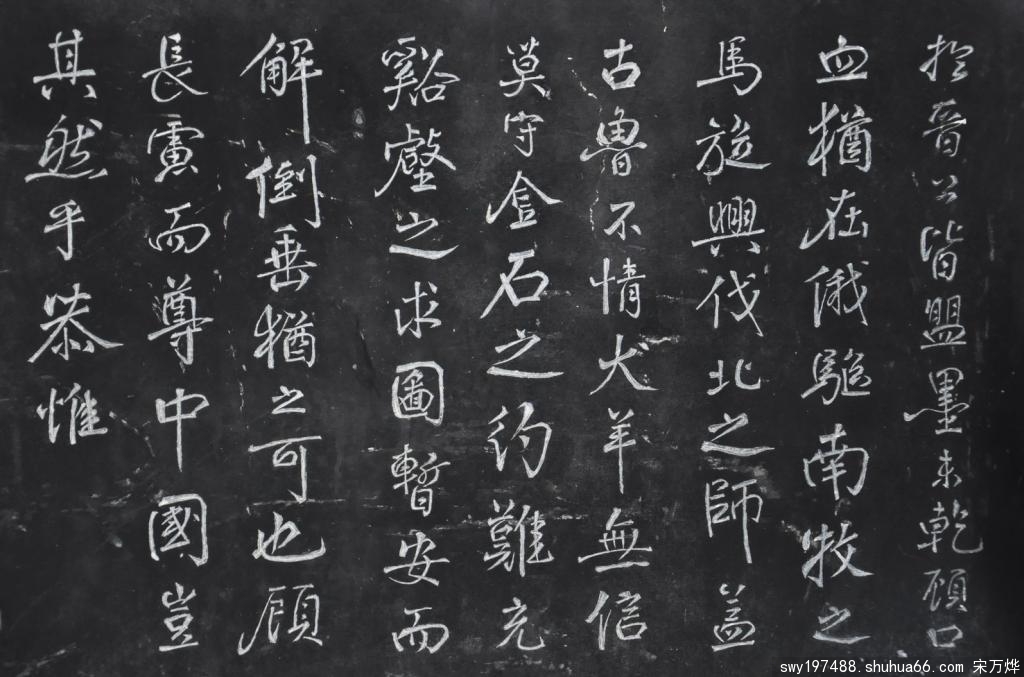 於晉公皆盟墨未乾顧口
血猶在俄驅南牧之
馬旋興伐北之師蓋
古魯不情犬羊無信
莫守金石之約難充
谿壑之求圖暫安而
解倒垂猶之可也顧
長慮而尊中國豈
其然乎恭惟
swy197488.shuhua66.com 宋万烨